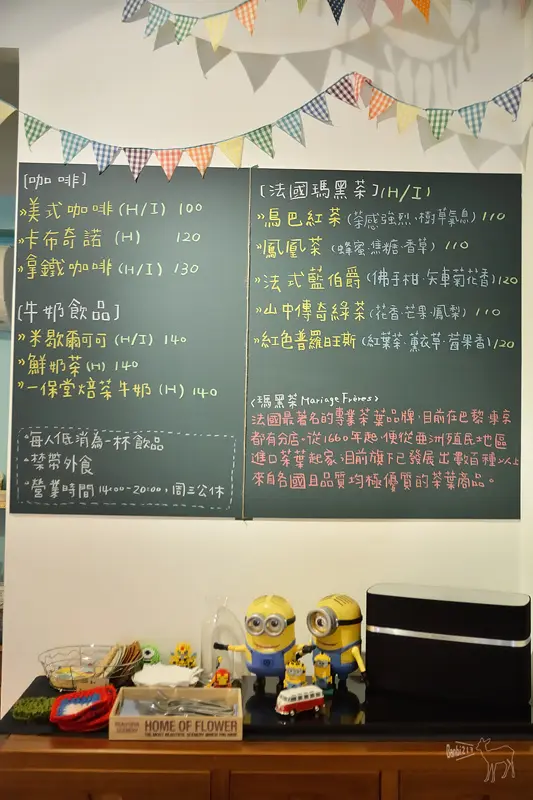 [咖啡]
»美式咖啡(H/I) 100
»卡布奇諾 (H) 120
»拿鐵咖啡(H/I) 130
[牛奶飲品]
»米歇爾可可(H/I) 140
»鮮奶茶(H) 140
»一保堂焙茶牛奶(H) 140
*每人低消為一杯飲品
*禁帶外食
*營業時間 14:00-20:00,周三公休
[法國瑪黑茶](H/I)
»鳥巴紅茶(茶感強烈.樹草氣息) 110
»鳳凰茶 (蜂蜜.焦糖.香草) 110
»法式藍伯爵(佛手柑.矢車菊花香)120
»山中傳奇綠茶(花香.芒果.鳳梨) 110
»紅色普羅旺斯(紅葉茶.薰衣草.莓果香)120
<瑪黑茶 Mariage Frères>
法國最著名的專業茶葉品牌,目前在巴黎東京
都有分店。從1660年起,便從亞洲殖民地區
進口茶葉起家,目前旗下已發展出數百種以上
來自各國且品質均極優質的茶葉商品。
HOME OF FLOWER